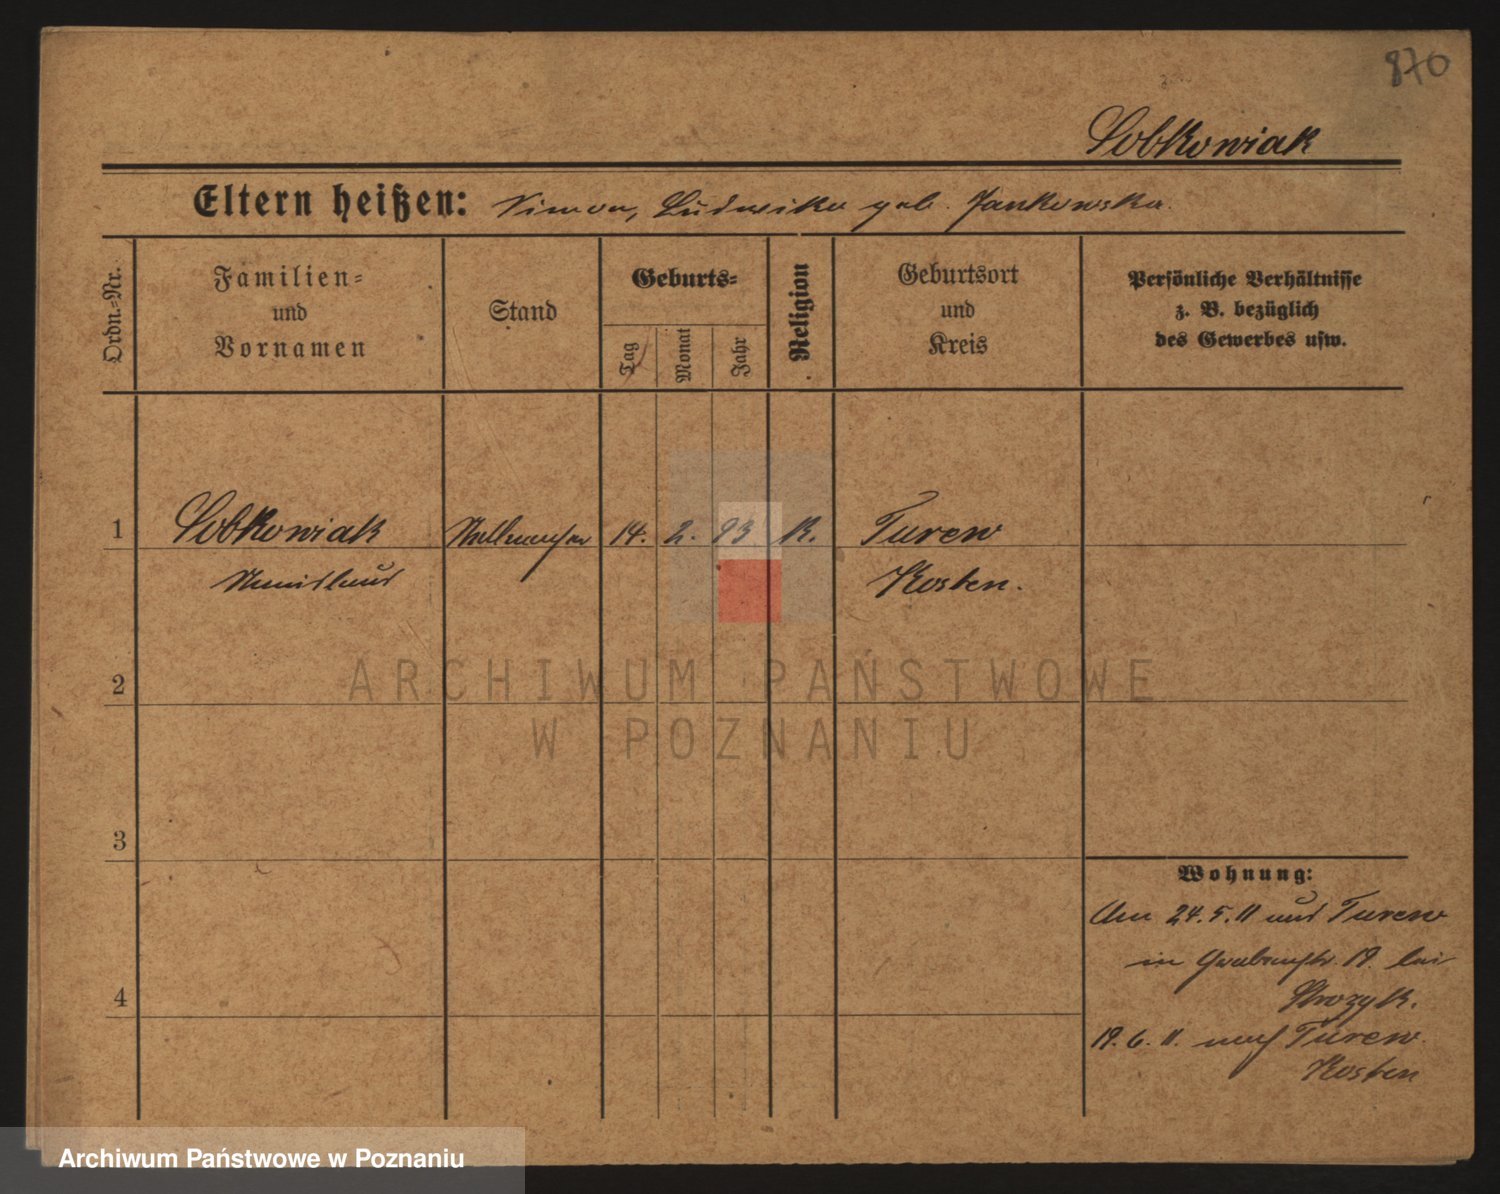 870
Sobkowiak
Eltern heißen: Simon, Ludwika geb. Jankowska.
Ordn.-Nr.
Familien-
und
Vornamen
Stand
Geburts-
Tag
Monat
Jahr
Religion
Geburtsort
und
Kreis
Persönliche Verhältnisse
z. B. bezüglich
des Gewerbes usw.
1 Sobkowiak 14. 2. 93 K. Turew
Stanislaus Kosten.
2
3
4
Wohnung:
Am 24.5.11 aus Turew
in Grabenstr. 19. bei
19.6.11. nach Turew.
Kosten
ARCHIWUM PAŃSTWOWE
W POZNANIU
Archiwum Państwowe w Poznaniu